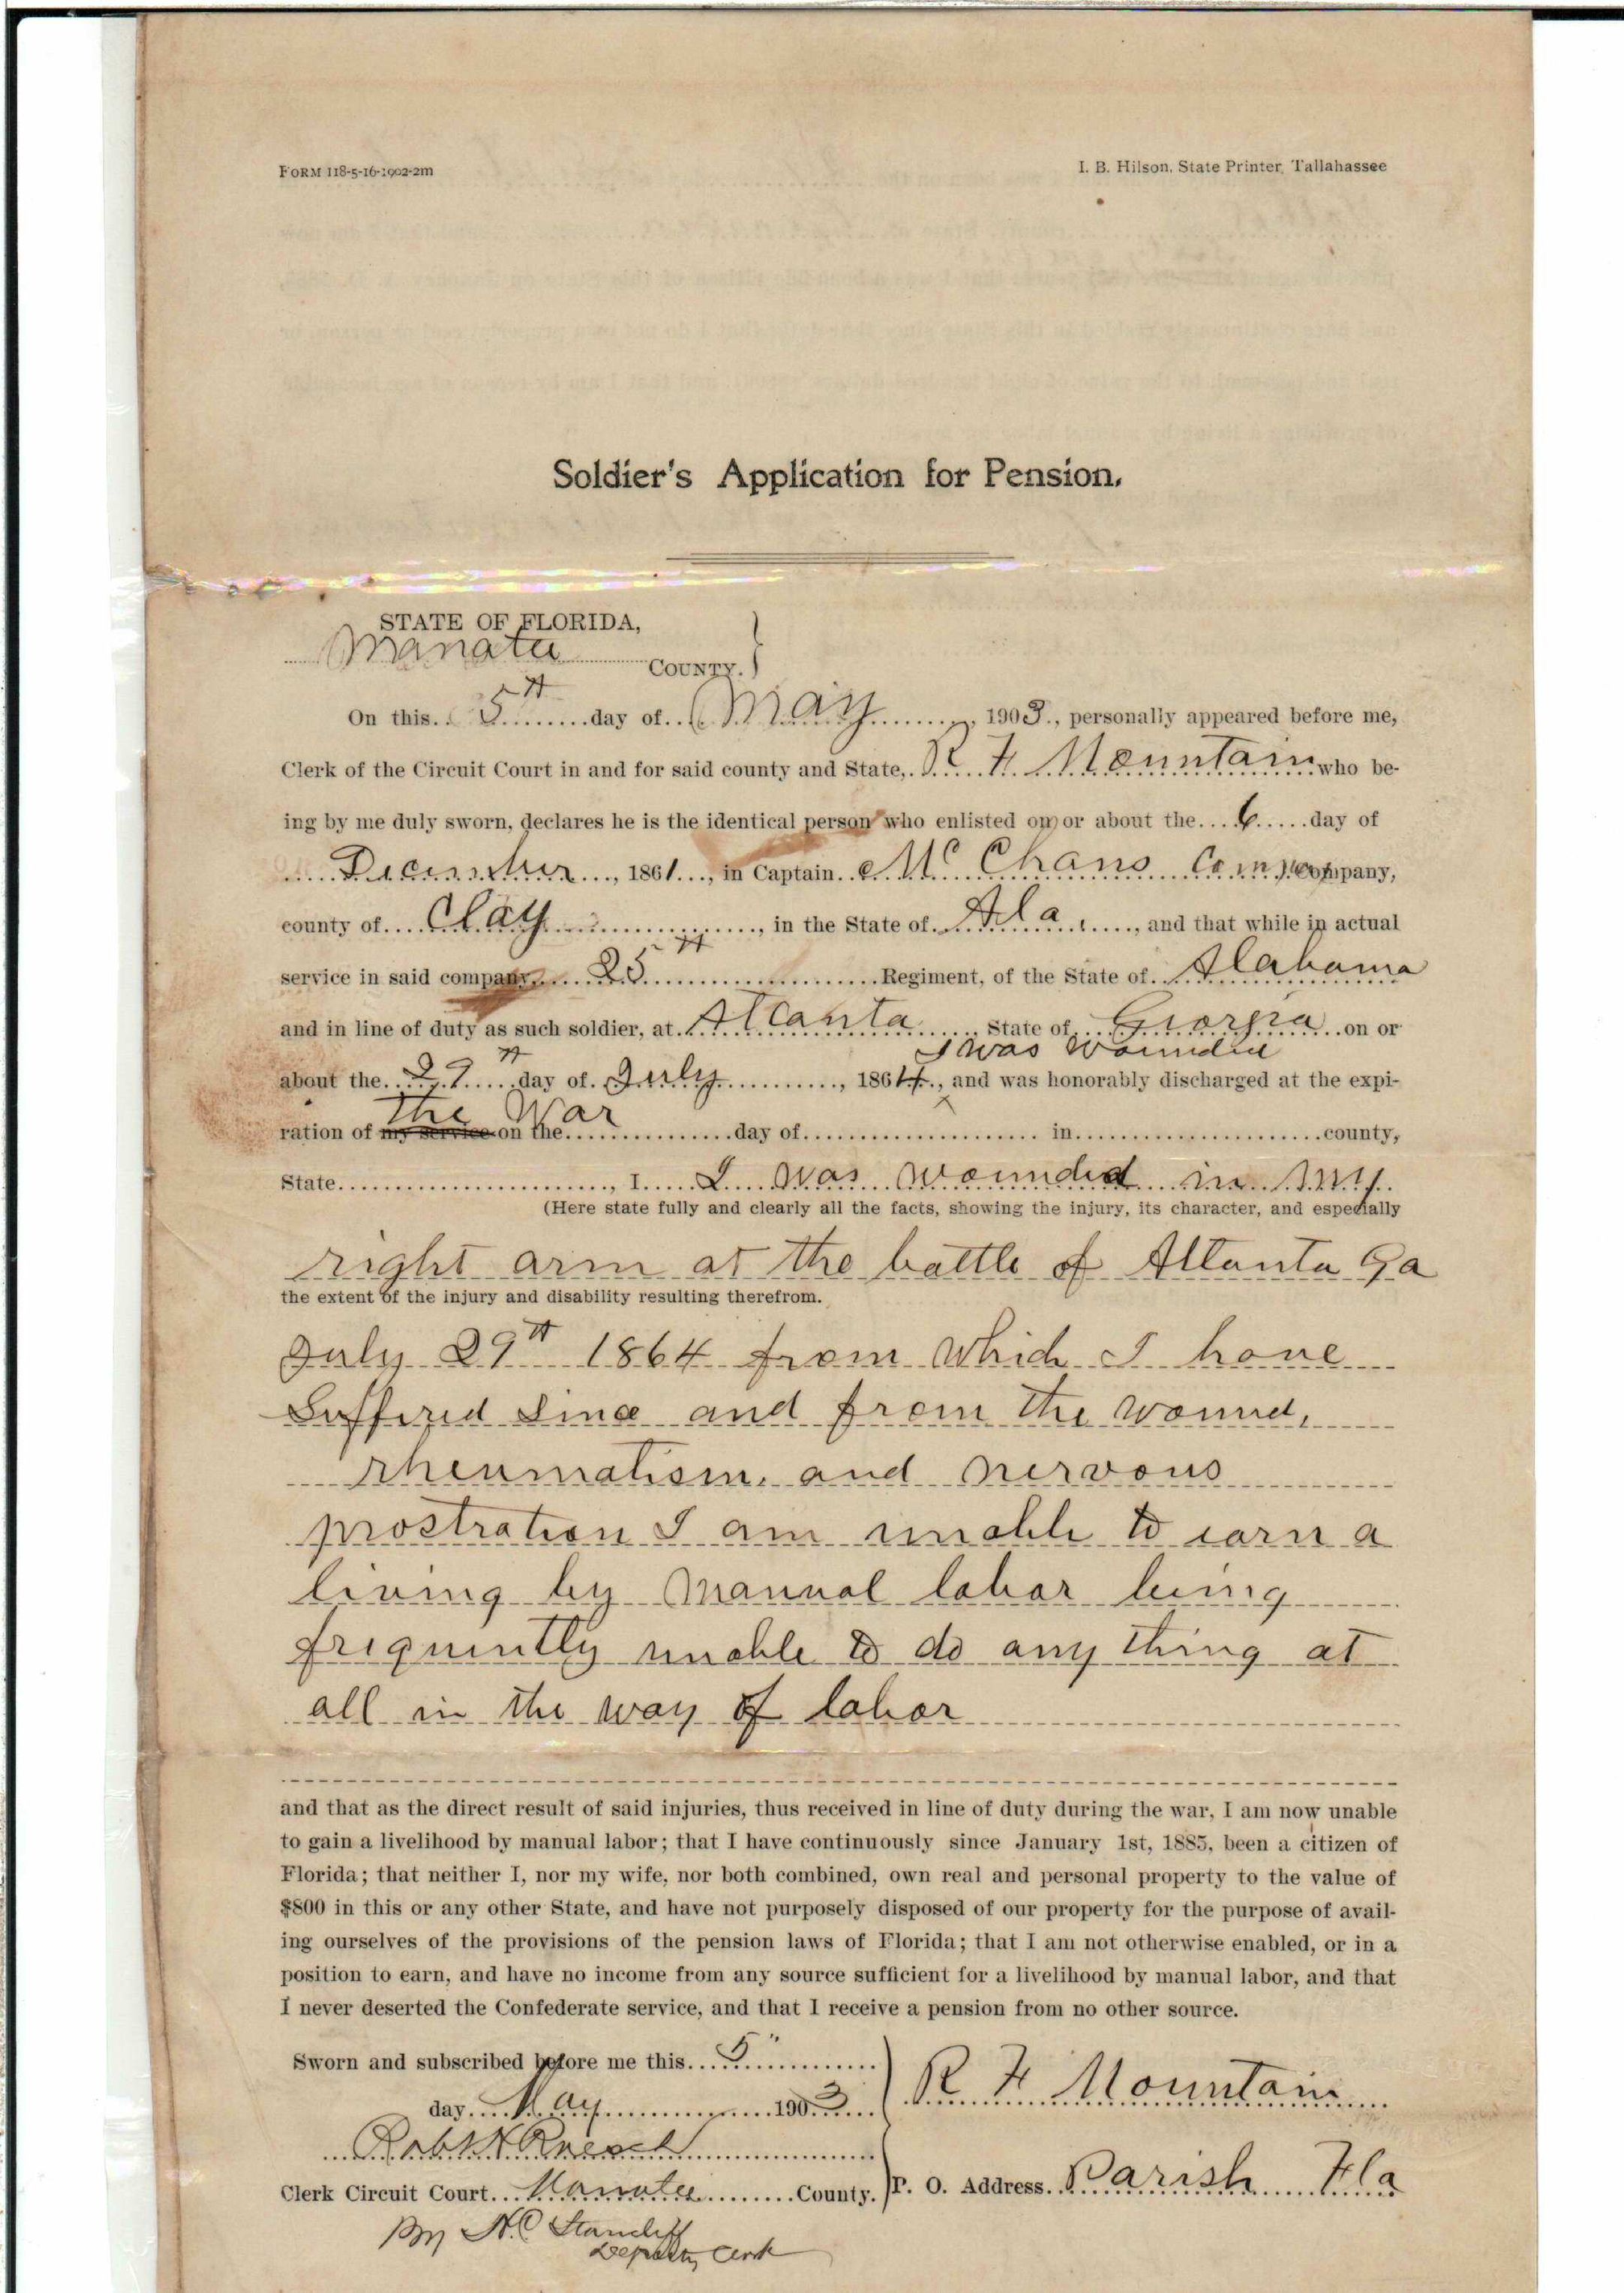 FORM 118-5-16-1902-2m
I. B. Hilson, State Printer, Tallahassee
Soldier's Application for Pension.
STATE OF FLORIDA,
Manatee COUNTY.
On this 5th day of May, 1903, personally appeared before me,
Clerk of the Circuit Court in and for said county and State, R F Mountain who be-
ing by me duly sworn, declares he is the identical person who enlisted on or about the 6 day of
December, 1861, in Captain Mc Chans Company,
county of Clay, in the State of Ala., and that while in actual
service in said company, 25th Regiment, of the State of Alabama
and in line of duty as such soldier, at Atlanta State of Georgia on or
I was wounded
about the 29th day of July, 1864, and was honorably discharged at the expi-
The War
ration of my service on the day of in county,
State, I I was wounded in my
(Here state fully and clearly all the facts, showing the injury, its character, and especially
right arm at the battle of Atlanta Ga
the extent of the injury and disability resulting therefrom.
July 29th 1864 from which I have
Suffered since and from the wound,
rheumatism, and nervous
prostration I am unable to earn a
living by manual labor being
frequently unable to do any thing at
all in the way of labor
and that as the direct result of said injuries, thus received in line of duty during the war, I am now unable
to gain a livelihood by manual labor; that I have continuously since January 1st, 1885, been a citizen of
Florida; that neither I, nor my wife, nor both combined, own real and personal property to the value of
$800 in this or any other State, and have not purposely disposed of our property for the purpose of avail-
ing ourselves of the provisions of the pension laws of Florida; that I am not otherwise enabled, or in a
position to earn, and have no income from any source sufficient for a livelihood by manual labor, and that
I never deserted the Confederate service, and that I receive a pension from no other source.
Sworn and subscribed before me this 5"
day May 1903
R F Mountain
Robt H Roesch
Clerk Circuit Court Manatee County.
P. O. Address Parish Fla
By H.C. Stancliff
Deputy Clerk